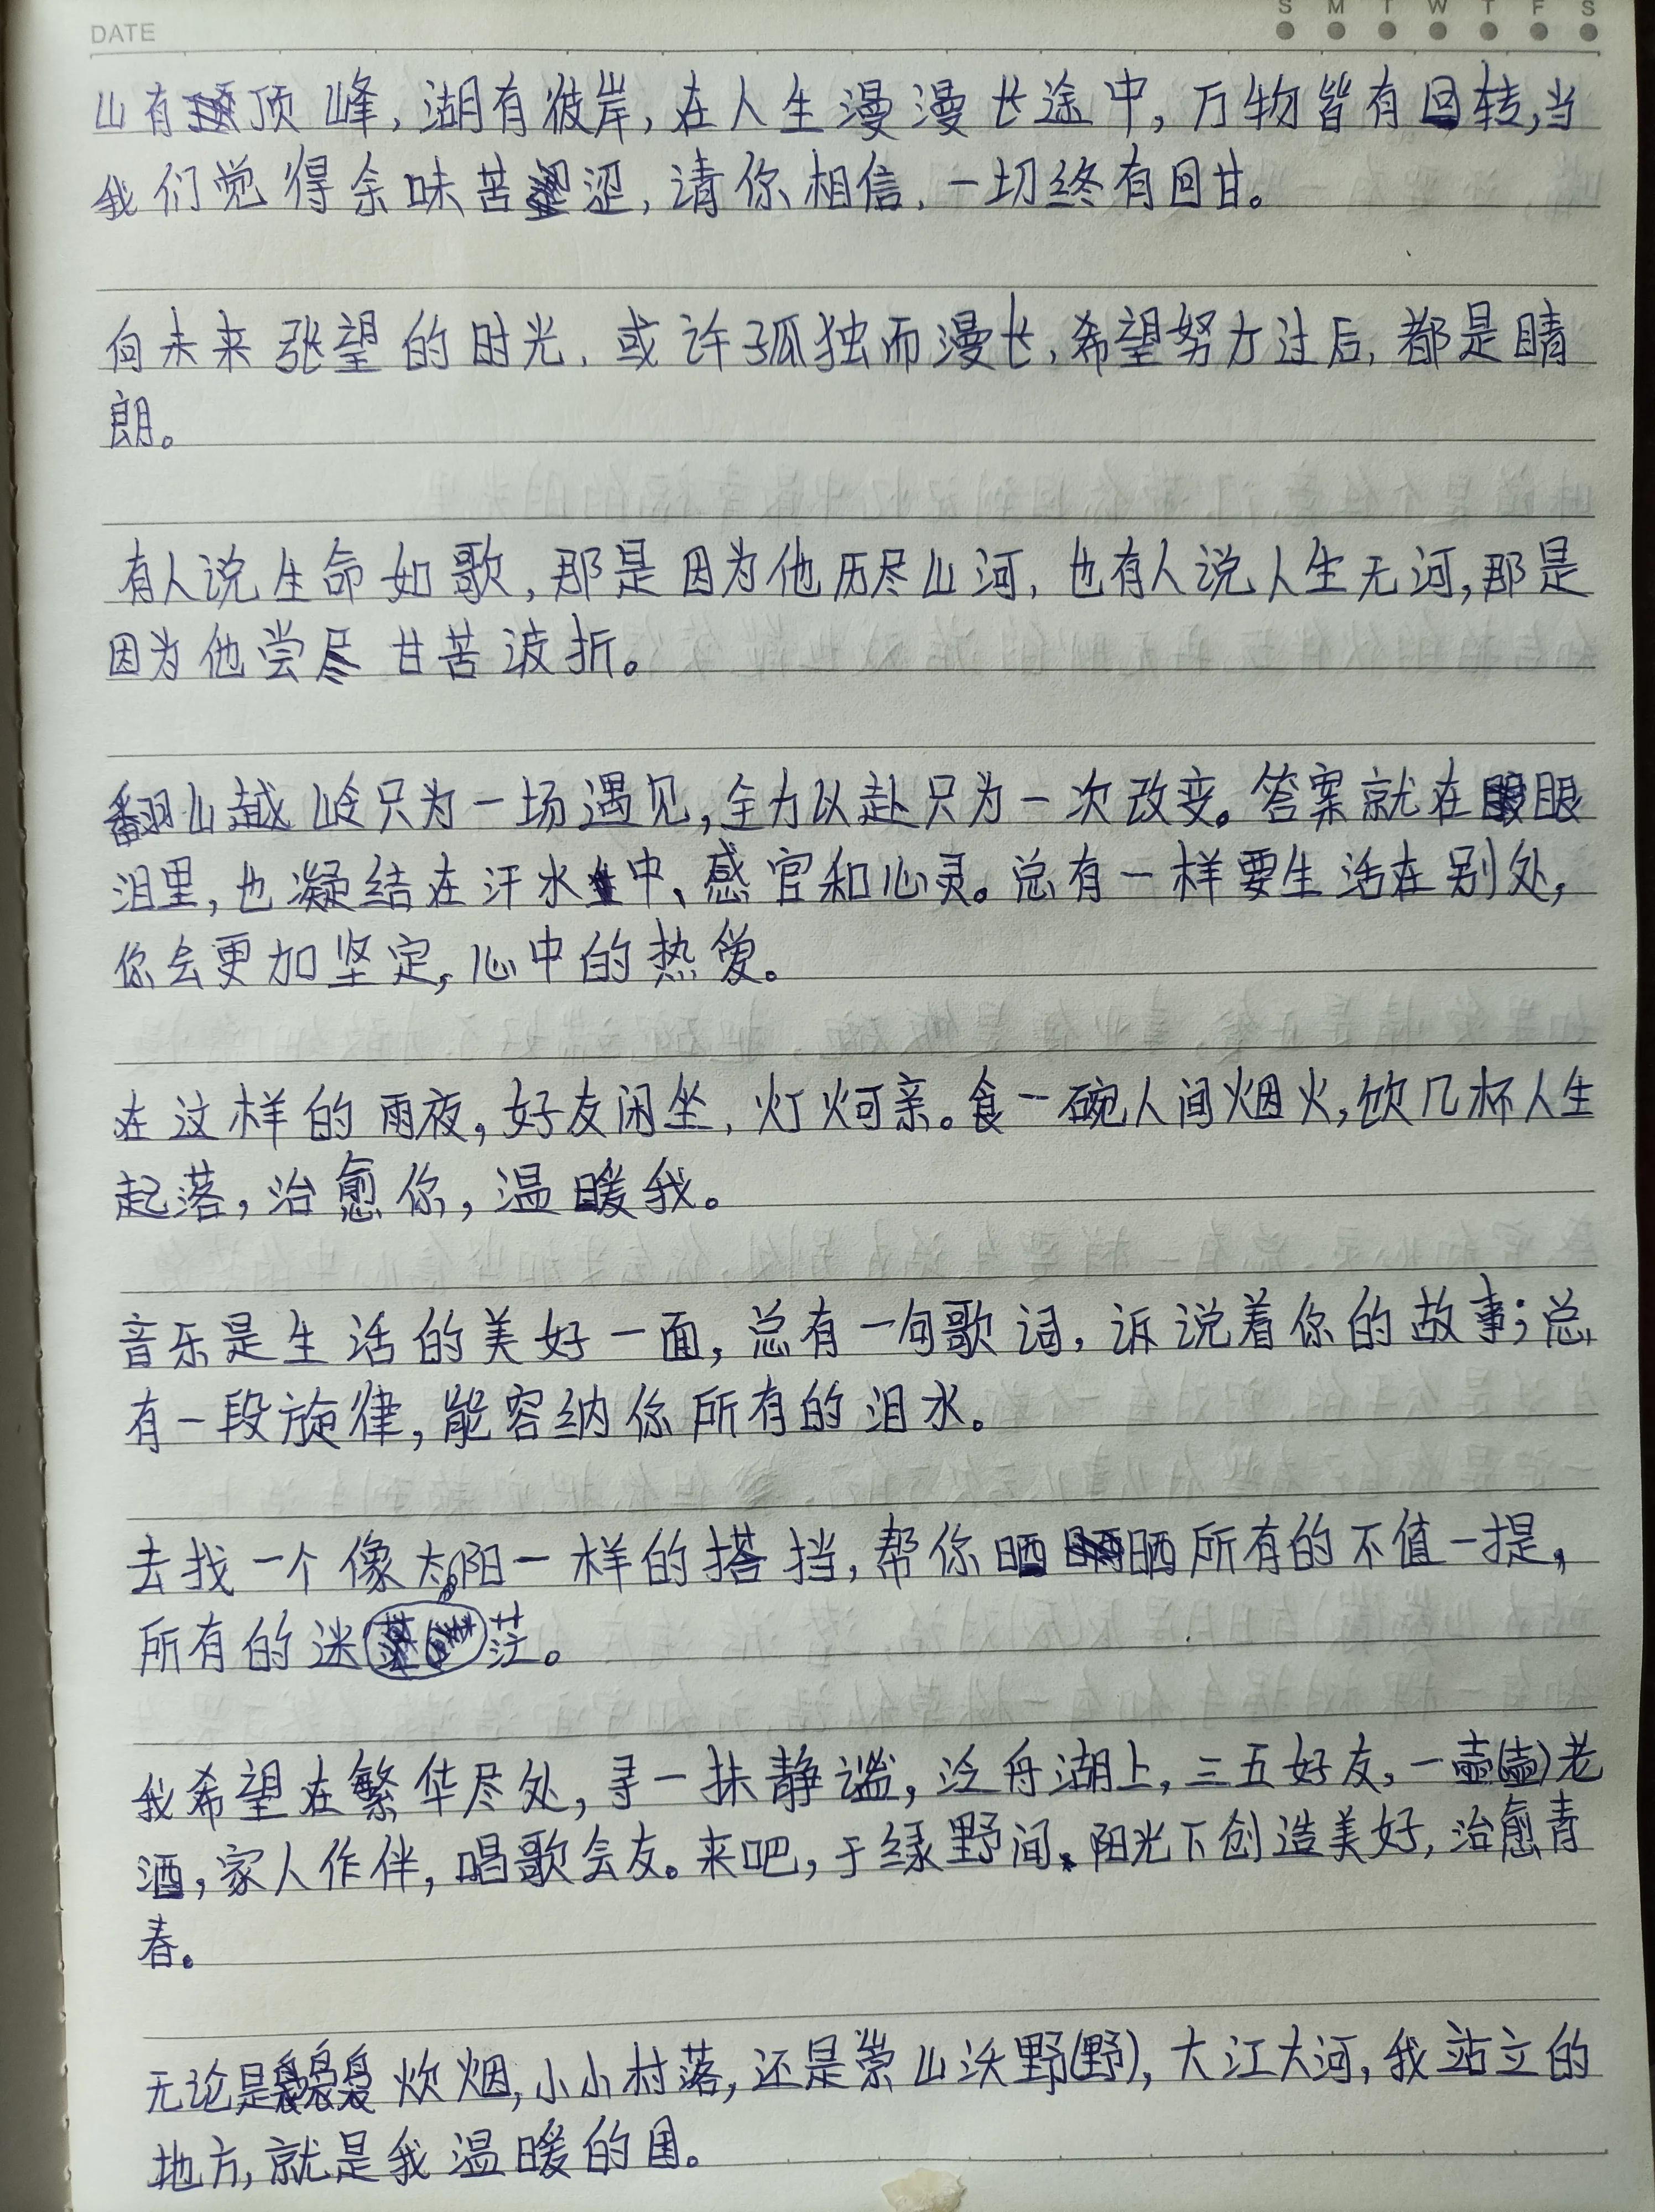 DATE
S M T W T F S
山有顶峰,湖有彼岸,在人生漫漫长途中,万物皆有回转,当
我们觉得余味苦涩,请你相信,一切终有回甘。
向未来张望的时光,或许孤独而漫长,希望努力过后,都是晴
朗。
有人说生命如歌,那是因为他历尽山河,也有人说人生无河,那是
因为他尝尽甘苦波折。
翻山越岭只为一场遇见,全力以赴只为一次改变。答案就在眼
泪里,也凝结在汗水中、感官和心灵。总有一样要生活在别处,
你会更加坚定,心中的热爱。
在这样的雨夜,好友闲坐,灯火可亲。食一碗人间烟火,饮几杯人生
起落,治愈你,温暖我。
音乐是生活的美好一面,总有一句歌词,诉说着你的故事;总
有一段旋律,能容纳你所有的泪水。
去找一个像太阳一样的搭挡,帮你晒晒所有的不值一提,
所有的迷茫。
我希望在繁华尽处,寻一抹静谧,泛舟湖上,三五好友,一壶(壶)老
酒,家人作伴,唱歌会友。来吧,于绿野间,阳光下创造美好,治愈青
春。
无论是袅袅炊烟,小小村落,还是崇山沃野(野),大江大河,我站立的
地方,就是我温暖的国。